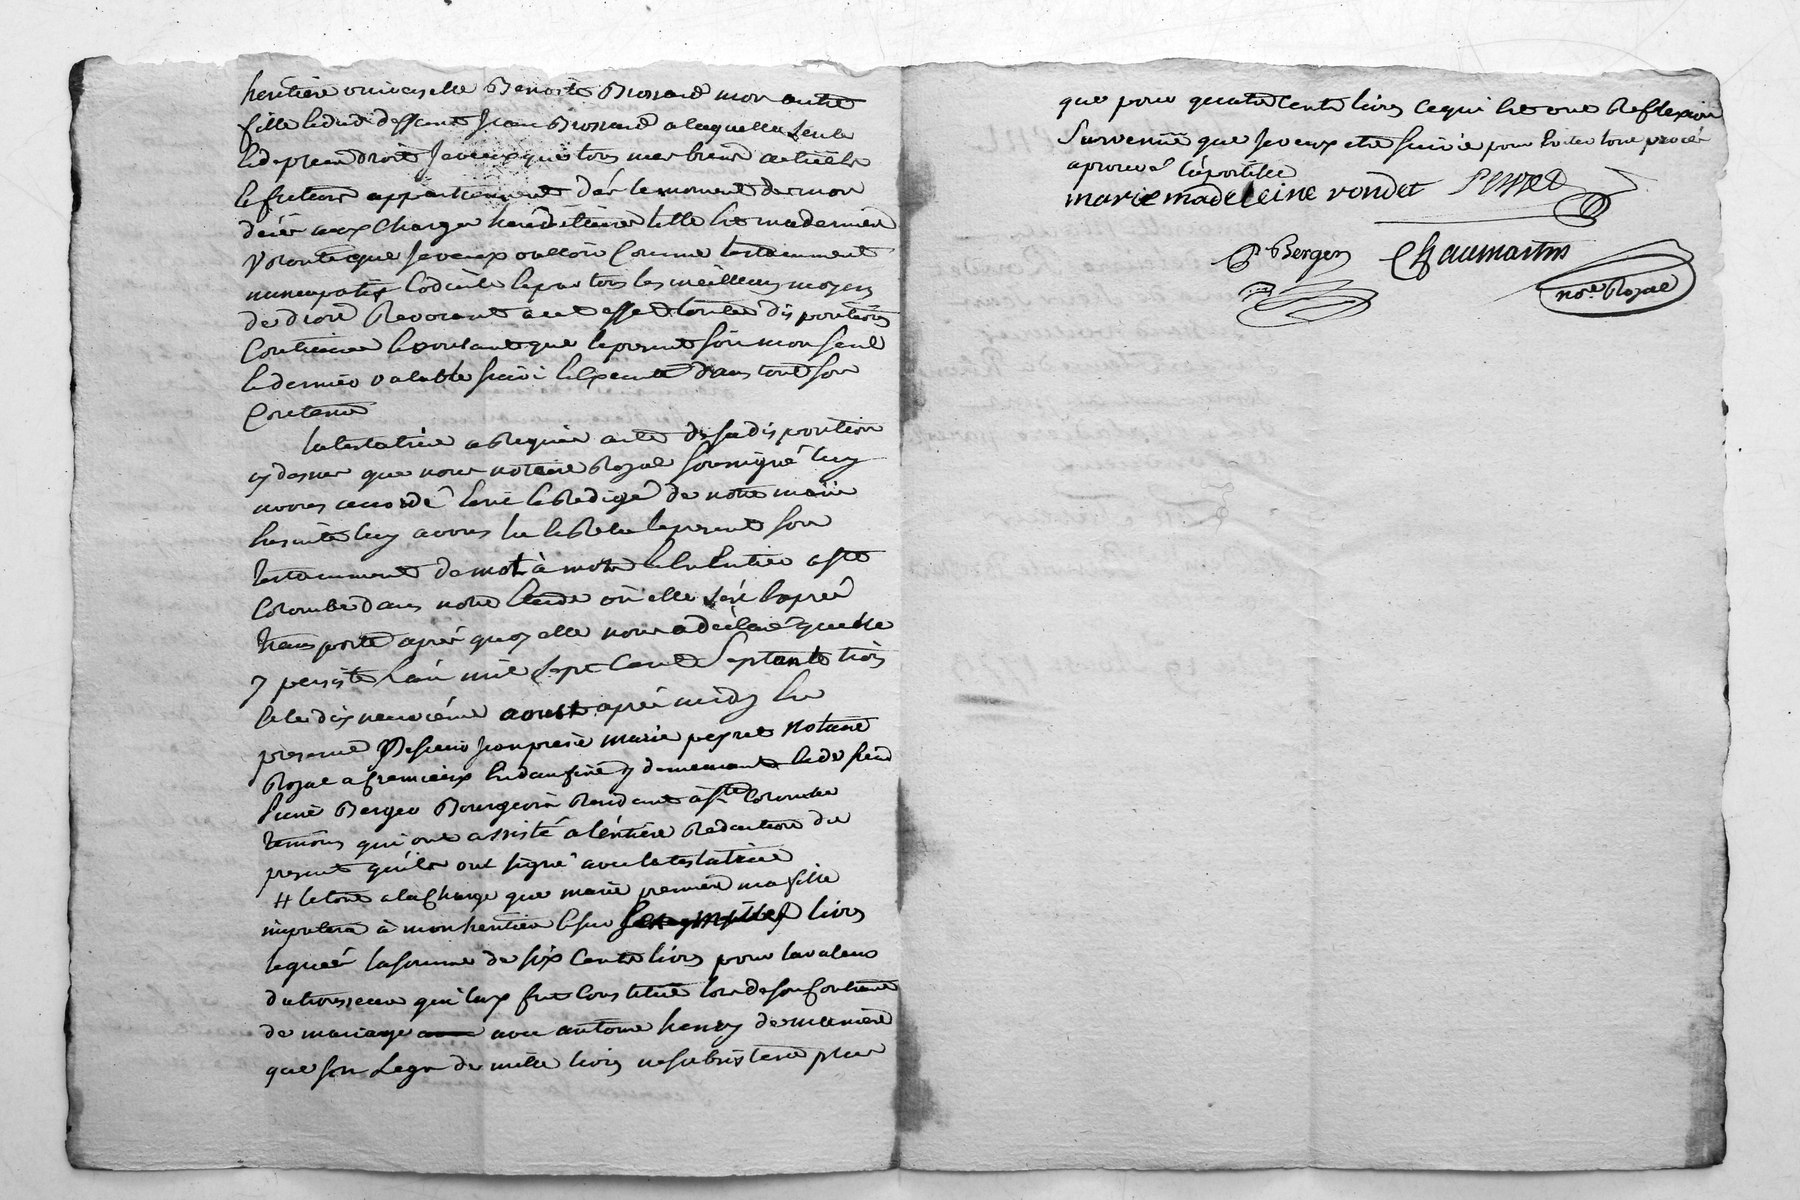 heritiere universelle Benoite Brossard mon autre
fille du dit deffunt Jean Brossard a laquelle seule
de plein droit Je veux que tous mes biens actuels
et futurs appartiennent dès le moment de mon
décès aux charges héréditaires telle est ma derniere
volonté que Je veux valloir comme testamment
nuncupatif codicile et par tous les meilleurs moyens
de droit Revocant a cet effet toutes dispositions
Contraires et voulant que le present soit mon seul
et dernier valable suivi et Executé dans tout son
Contenu
la testatrice a Requis acte de sa disposition
cy dessus que nous notaire Royal soussigné luy
avons accordé Ecrit et Redigé de notre main
Ensuite luy avons lu et Relu le present son
testamment de mot à mot et En Entier a Ste
Colombe dans notre Etude où elle s'est Exprès
transporté après quoy elle nous a déclaré qu'elle
y persiste L'an mil sept Cent Septante trois
et le dix neuvième aoust après midy En
presence de sieur Jean pierre marie peyret notaire
Royal a Cremieux En dauphiné y demeurant et de sieur
Pierre Berger Bourgeois Residant à Ste Colombe
témoins qui ont assisté a l'entiere Redaction du
present qu'ils ont signé avec la testatrice
# le tout a la charge que marie premiere ma fille
imputera à mon heritiere sur livres
legués la somme de six Cents livres pour la valeur
du trousseau qui luy fut Constitué lors de son Contrat
de mariage avec antoine henry de maniere
que son Legs de mille livres ne subsistera plus
que pour quatre cents livres ce qui Est une Reflexion
Survenüe que Je veux etre Suivie pour Eviter tout procès
aprouvé l'apostille
marie madeleine rondet Peyret
P. Berger Chaumartin
not.e Royal